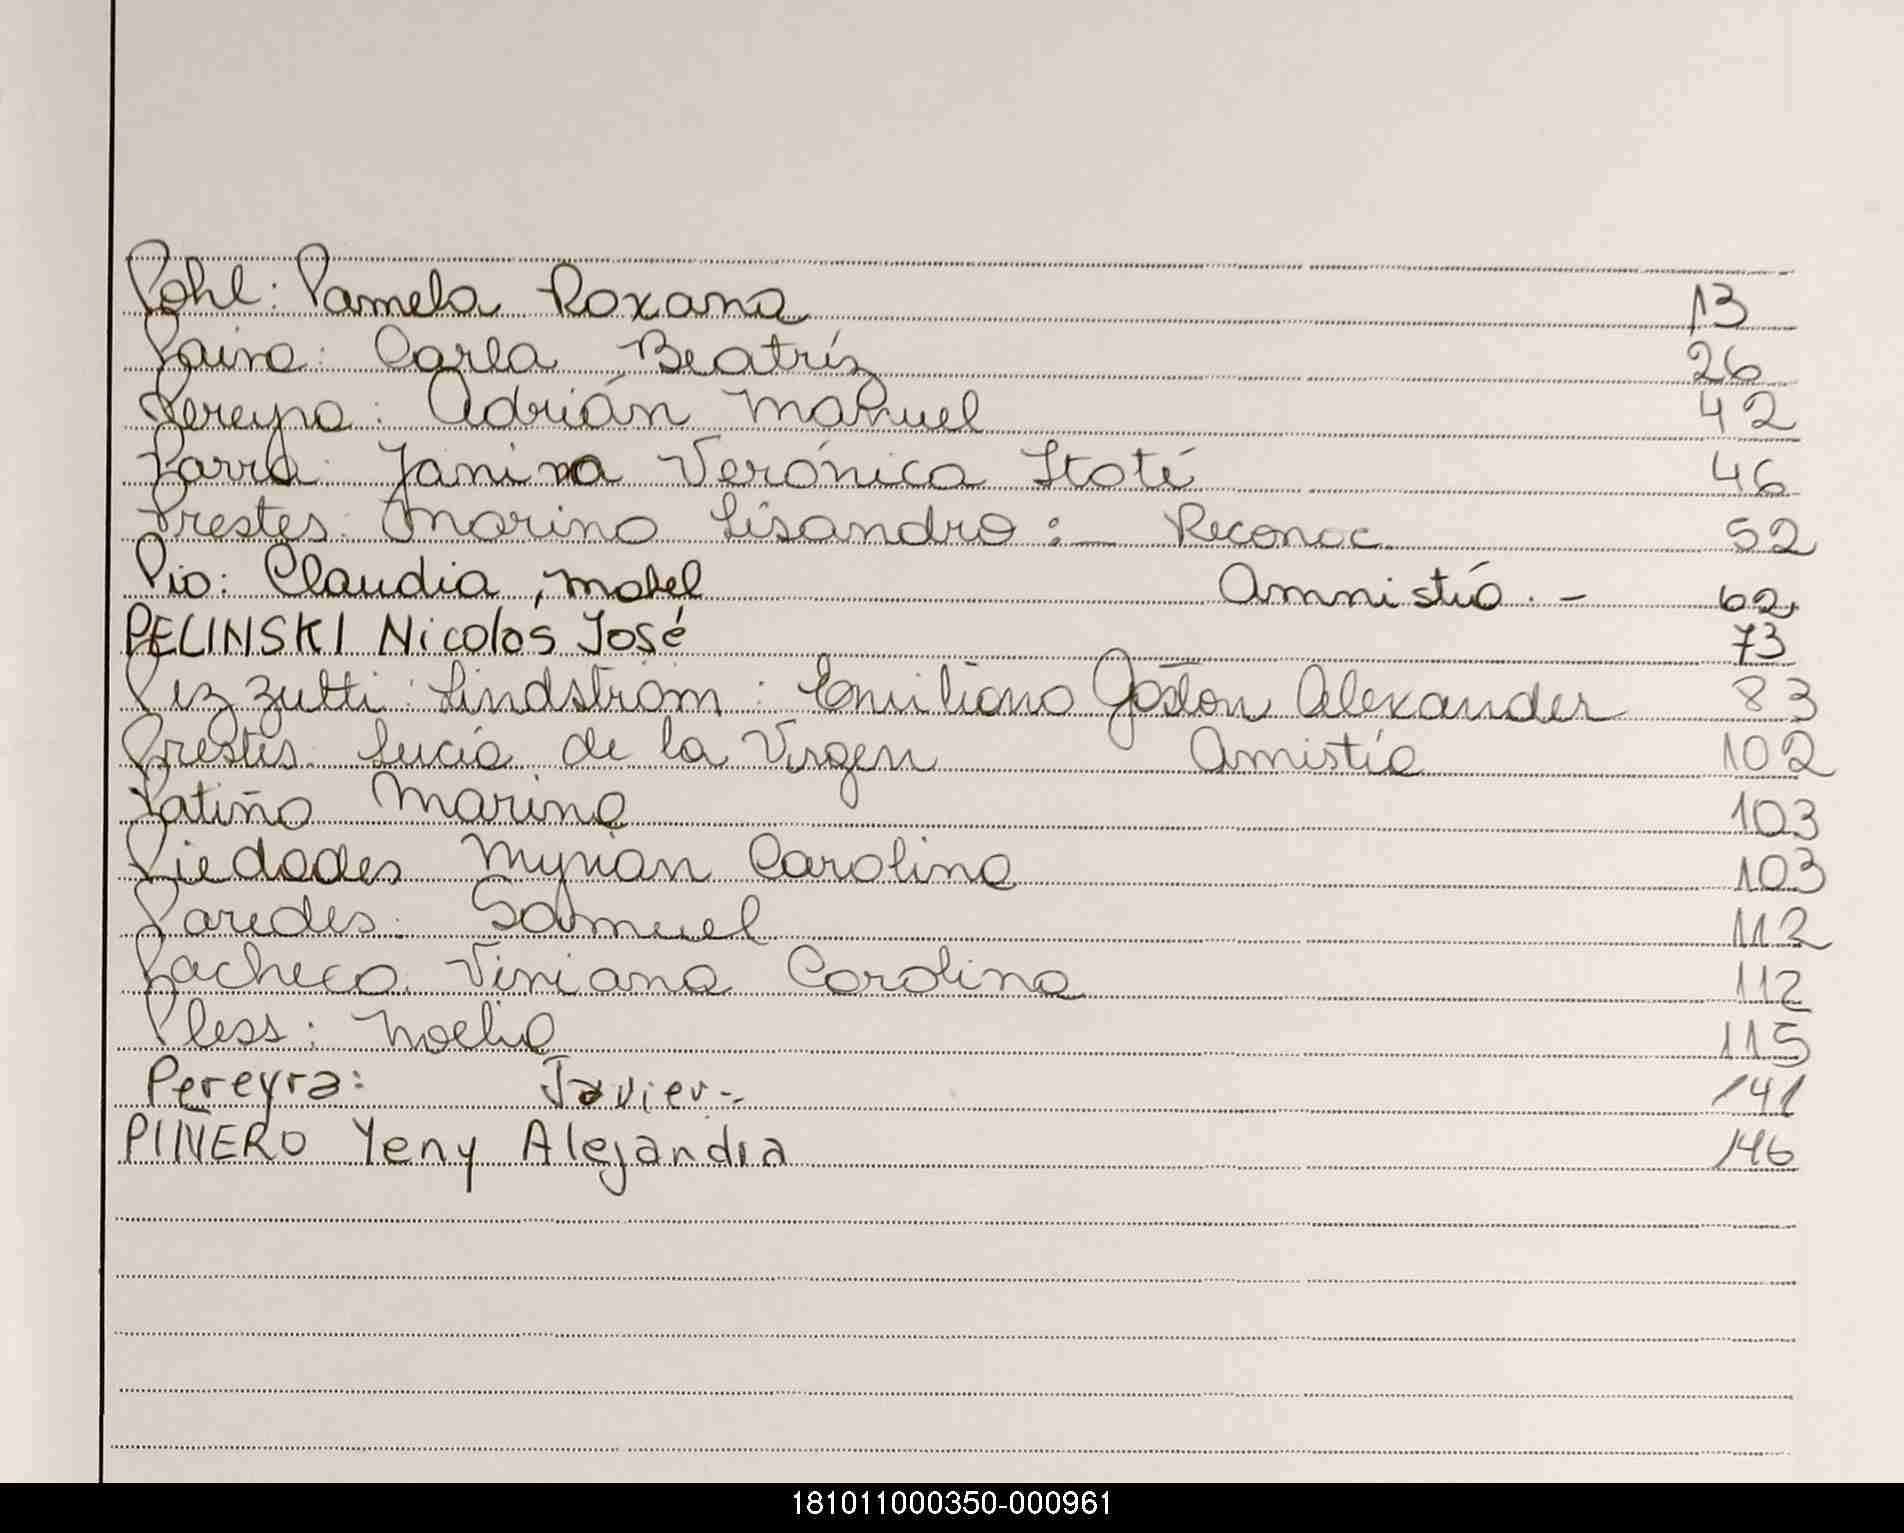 Pohl: Pamela Roxana 13
Paiva: Carla Beatríz 26
Pereyra: Adrián Manuel 42
Parra: Janina Verónica Itatí 46
Prestes: Marino Lisandro: — Reconoc. 52
Pio: Claudia, Mabel Amnistía. - 62
PELINSKI Nicolás José 73
Pezzutti: Lindström: Emiliano Gastón Alexander 83
Prestes. Lucía de la Virgen Amistía 102
Patiño Marina 103
Piedades Myrian Carolina 103
Paredes: Samuel 112
Pacheco Viviana Carolina 112
Pless: Noelia 115
Pereyra: Javier-. 141
PIÑERO Yeny Alejandra 146
181011000350-000961